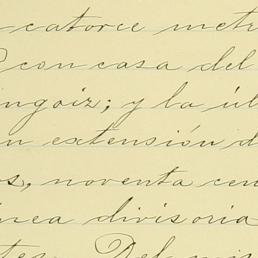 catorce metr
con casa del
ingoiz; y la úl
n extensión d
os, noventa cen
ínea divisoria
tes. Del mis